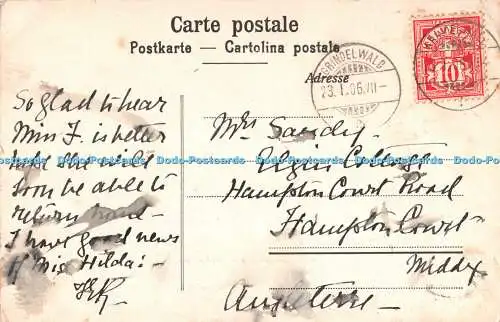 Carte postale
Postkarte — Cartolina postale
Adresse
GRINDELWALD
23. I. 06. VII-
HELVETIA
10
So glad to hear
Miss F. is better
hope she will
soon be able to
return home -
I have good news
of Miss Hilda! -
Mrs Sandy
Elgin Cottage
Hampton Court Road
Hampton Court
Middx
Angleterre
Dodo-Postcards Dodo-Postcards Dodo-Postcards Dodo-Postcards Dodo-Postcards